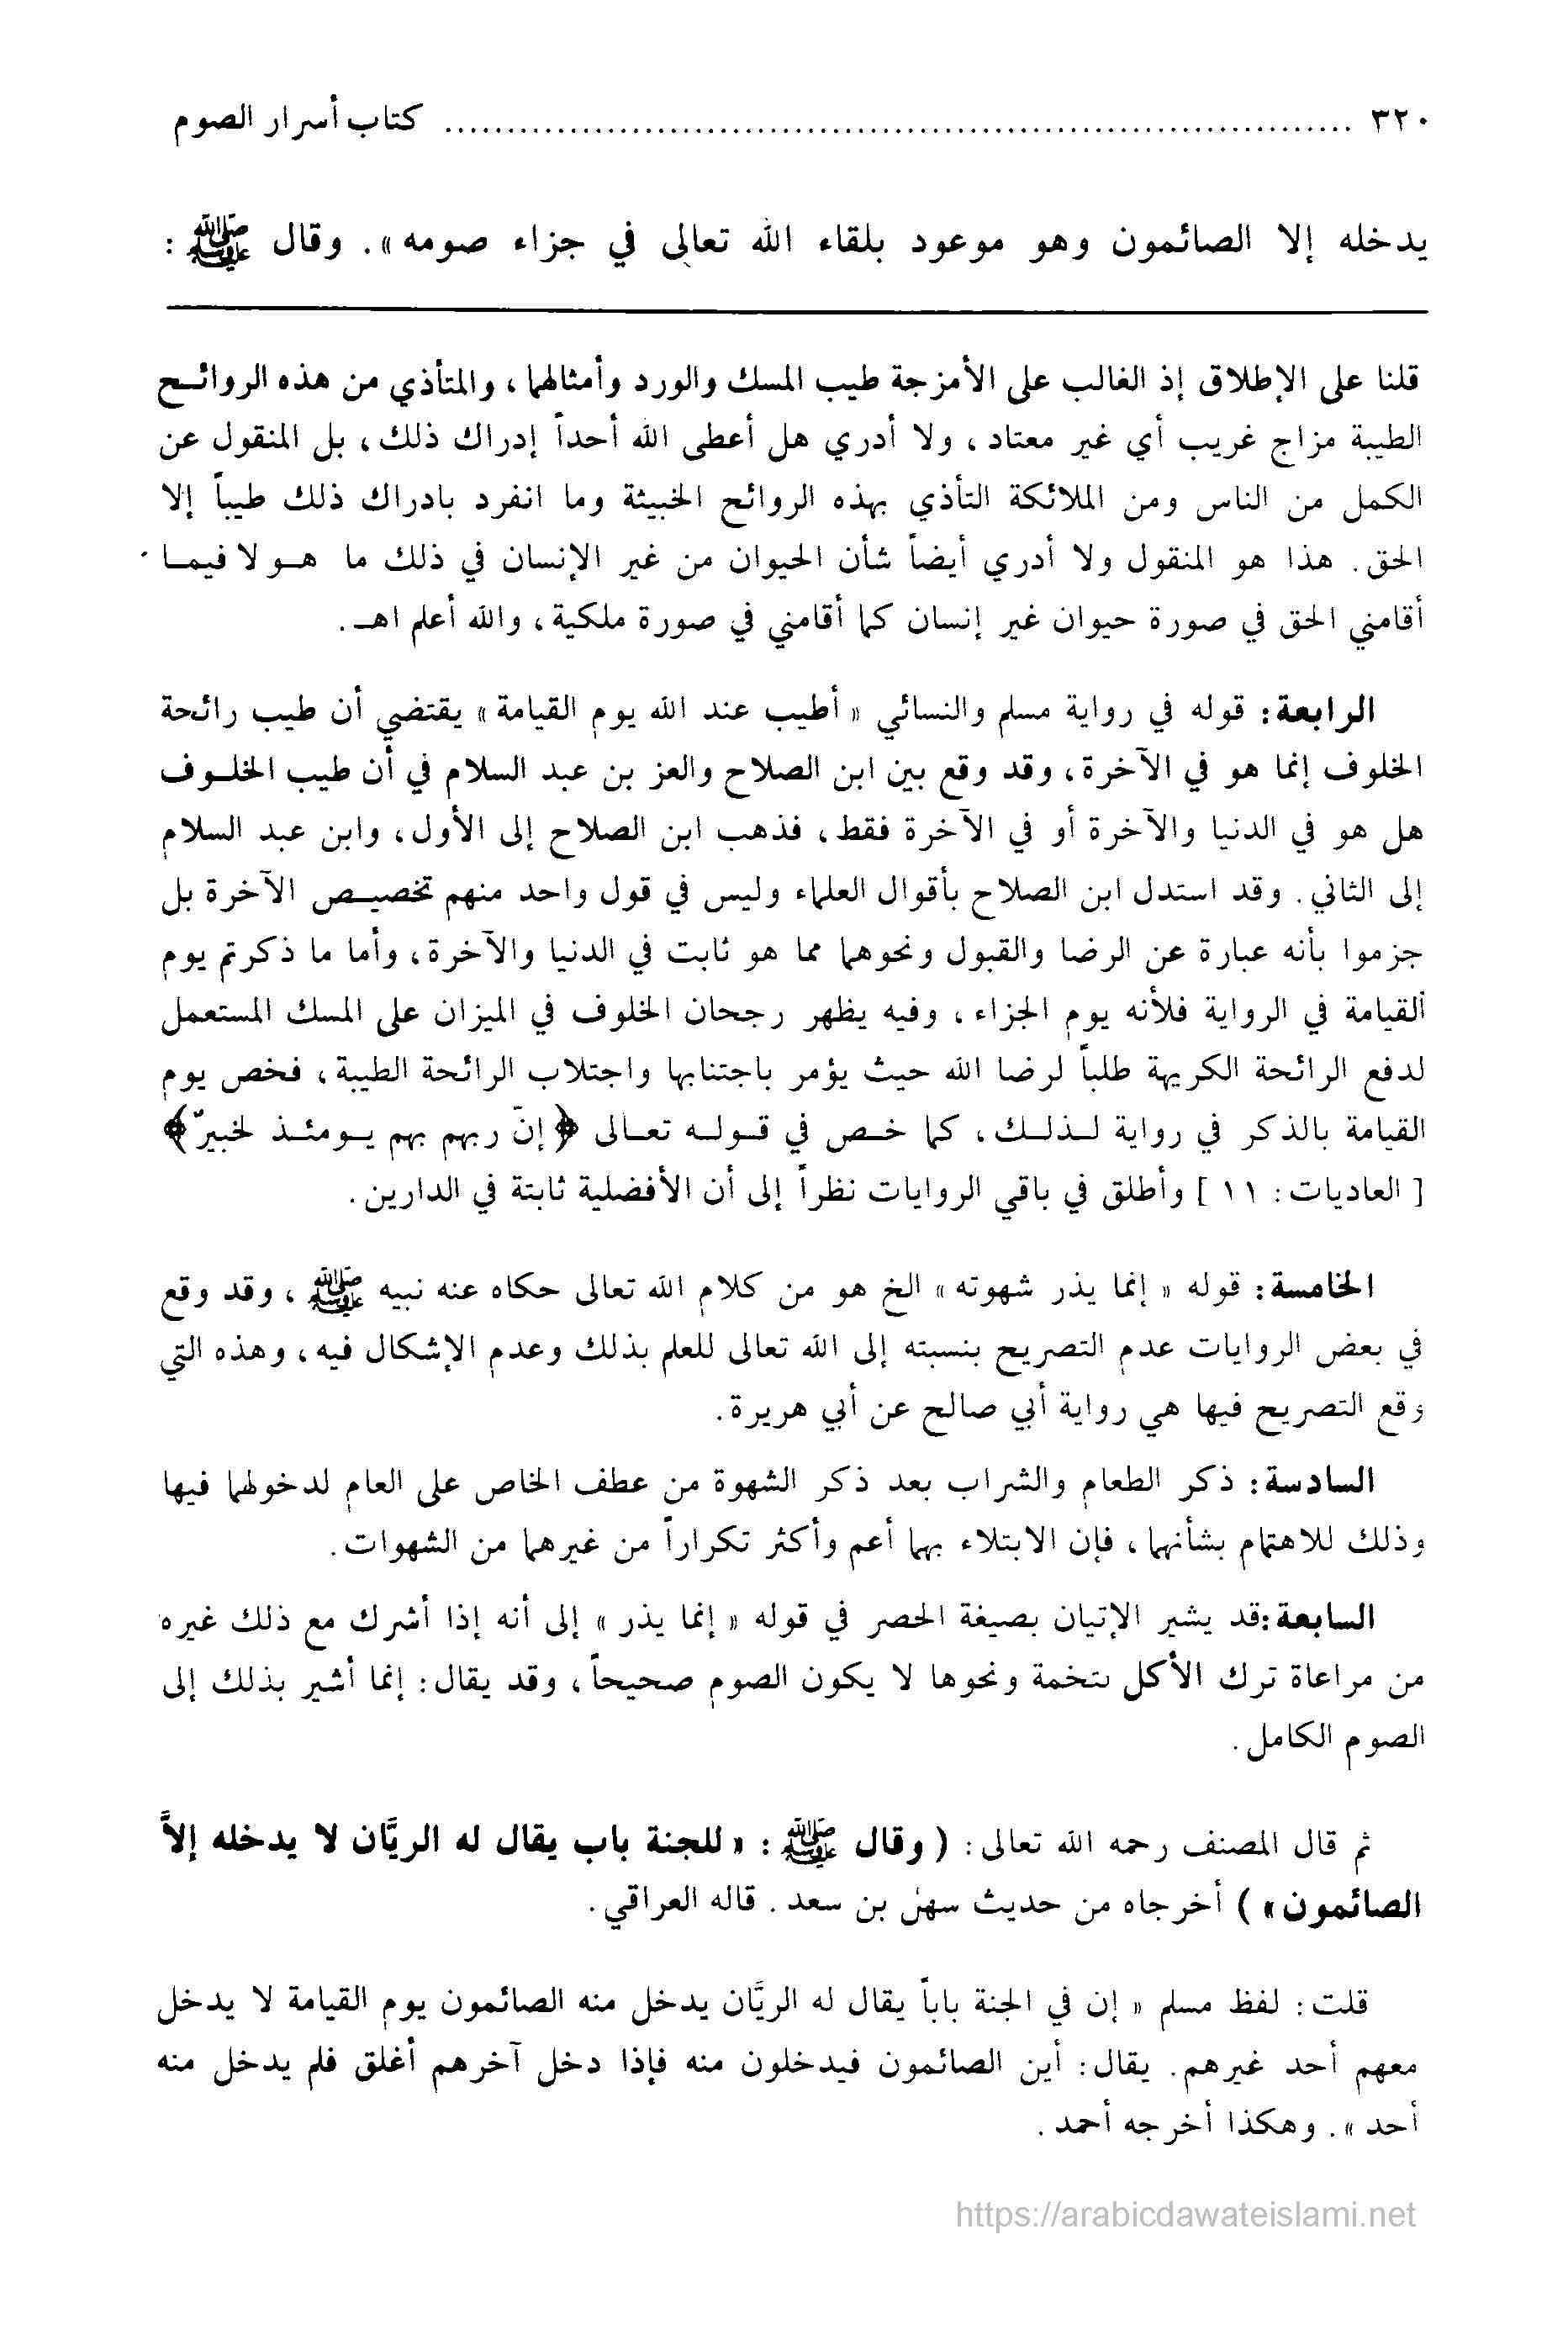 ٣٢٠ ........................................ كتاب أسرار الصوم
يدخله إلا الصائمون وهو موعود بلقاء الله تعالى في جزاء صومه». وقال ﷺ :
قلنا على الإطلاق إذ الغالب على الأمزجة طيب المسك والورد وأمثالهما، والمتأذي من هذه الروائح
الطيبة مزاج غريب أي غير معتاد، ولا أدري هل أعطى الله أحداً إدراك ذلك، بل المنقول عن
الكمل من الناس ومن الملائكة التأذي بهذه الروائح الخبيثة وما انفرد بادراك ذلك طيباً إلا
الحق. هذا هو المنقول ولا أدري أيضاً شأن الحيوان من غير الإنسان في ذلك ما هو لا فيما
أقامني الحق في صورة حيوان غير إنسان كما أقامني في صورة ملكية، والله أعلم اهـ.
الرابعة: قوله في رواية مسلم والنسائي « أطيب عند الله يوم القيامة» يقتضي أن طيب رائحة
الخلوف إنما هو في الآخرة، وقد وقع بين ابن الصلاح والعز بن عبد السلام في أن طيب الخلوف
هل هو في الدنيا والآخرة أو في الآخرة فقط، فذهب ابن الصلاح إلى الأول، وابن عبد السلام
إلى الثاني. وقد استدل ابن الصلاح بأقوال العلماء وليس في قول واحد منهم تخصيص الآخرة بل
جزموا بأنه عبارة عن الرضا والقبول ونحوهما مما هو ثابت في الدنيا والآخرة، وأما ما ذكرتم يوم
القيامة في الرواية فلأنه يوم الجزاء، وفيه يظهر رجحان الخلوف في الميزان على المسك المستعمل
لدفع الرائحة الكريهة طلباً لرضا الله حيث يؤمر باجتنابها واجتلاب الرائحة الطيبة، فخص يوم
القيامة بالذكر في رواية لذلك، كما خص في قوله تعالى ﴿إنّ ربهم بهم يومئذ لخبيرٌ﴾
[ العاديات: ١١ ] وأطلق في باقي الروايات نظراً إلى أن الأفضلية ثابتة في الدارين.
الخامسة: قوله « إنما يذر شهوته» الخ هو من كلام الله تعالى حكاه عنه نبيه ﷺ ، وقد وقع
في بعض الروايات عدم التصريح بنسبته إلى الله تعالى للعلم بذلك وعدم الإشكال فيه، وهذه التي
وقع التصريح فيها هي رواية أبي صالح عن أبي هريرة.
السادسة: ذكر الطعام والشراب بعد ذكر الشهوة من عطف الخاص على العام لدخولهما فيها
وذلك للاهتمام بشأنهما، فإن الابتلاء بهما أعم وأكثر تكراراً من غيرهما من الشهوات.
السابعة:قد يشير الإتيان بصيغة الحصر في قوله « إنما يذر » إلى أنه إذا أشرك مع ذلك غيره
من مراعاة ترك الأكل بتخمة ونحوها لا يكون الصوم صحيحاً، وقد يقال: إنما أشير بذلك إلى
الصوم الكامل.
ثم قال المصنف رحمه الله تعالى: ( وقال ﷺ : « للجنة باب يقال له الريَّان لا يدخله إلاَّ
الصائمون» ) أخرجاه من حديث سهل بن سعد. قاله العراقي.
قلت: لفظ مسلم « إن في الجنة باباً يقال له الريَّان يدخل منه الصائمون يوم القيامة لا يدخل
معهم أحد غيرهم. يقال: أين الصائمون فيدخلون منه فإذا دخل آخرهم أغلق فلم يدخل منه
أحد ». وهكذا أخرجه أحمد.
https://arabicdawateislami.net